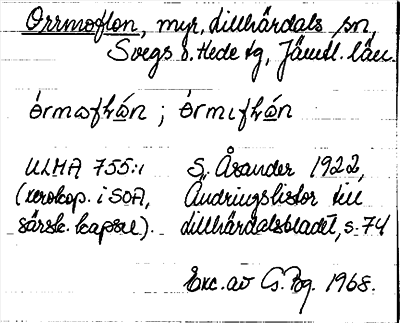 Orrmoflon, myr, Lillhärdals sn,
Svegs o. Hede tg, Jämtl. län.
òrmoflὼn ; òrmıflὼn
ULMA 755:1 S. Åsander 1922,
(xerokop. i SOA, Ändringslistor till
särsk. kapsel). Lillhärdalsbladet, s. 74
Exc. av Cs. Bg. 1968.